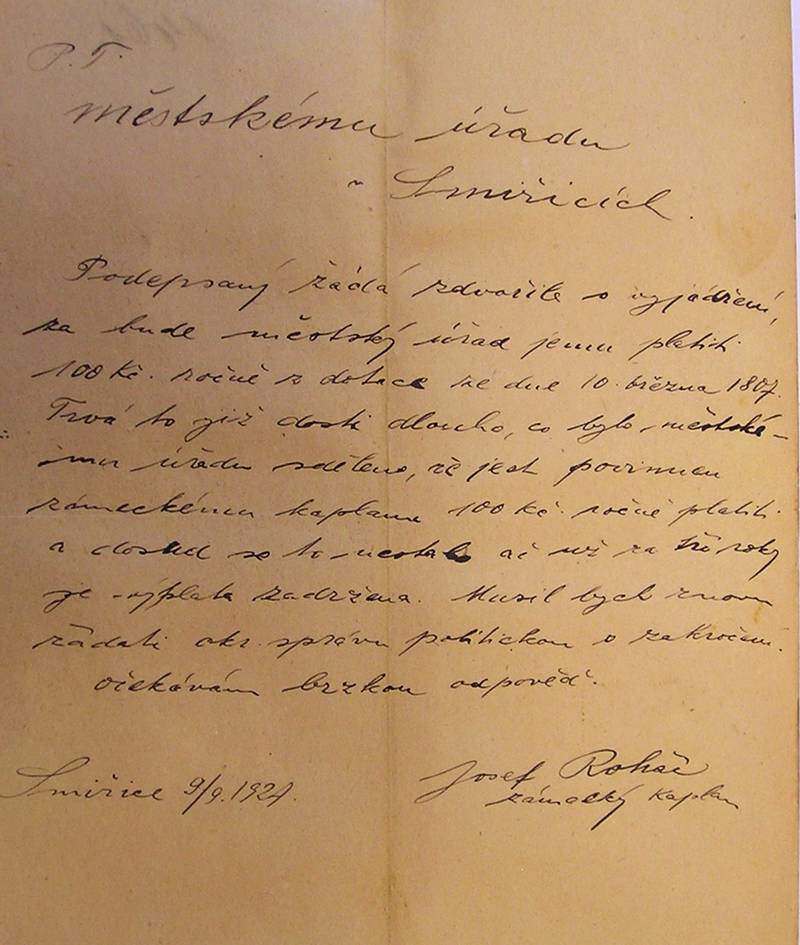 P. T.
městskému úřadu
v Smiřicích.
Podepsaný žádá zdvořile o vyjádření,
za bude městský úřad jemu platiti
100 Kč. ročně z dotace ze dne 10. března 1807.
Trvá to již dosti dlouho, co bylo městské-
mu úřadu sděleno, že jest povinnen
zámeckému kaplanu 100 Kč. ročně platiti
a dosud se to nestalo ač už za tři roky
je výplata zadržena. Musil bych znovu
žádati okr. správu politickou o zakročení.
Očekávám brzkou odpověď.
Smiřice 9/9. 1924.
Josef Roháč
zámecký kaplan